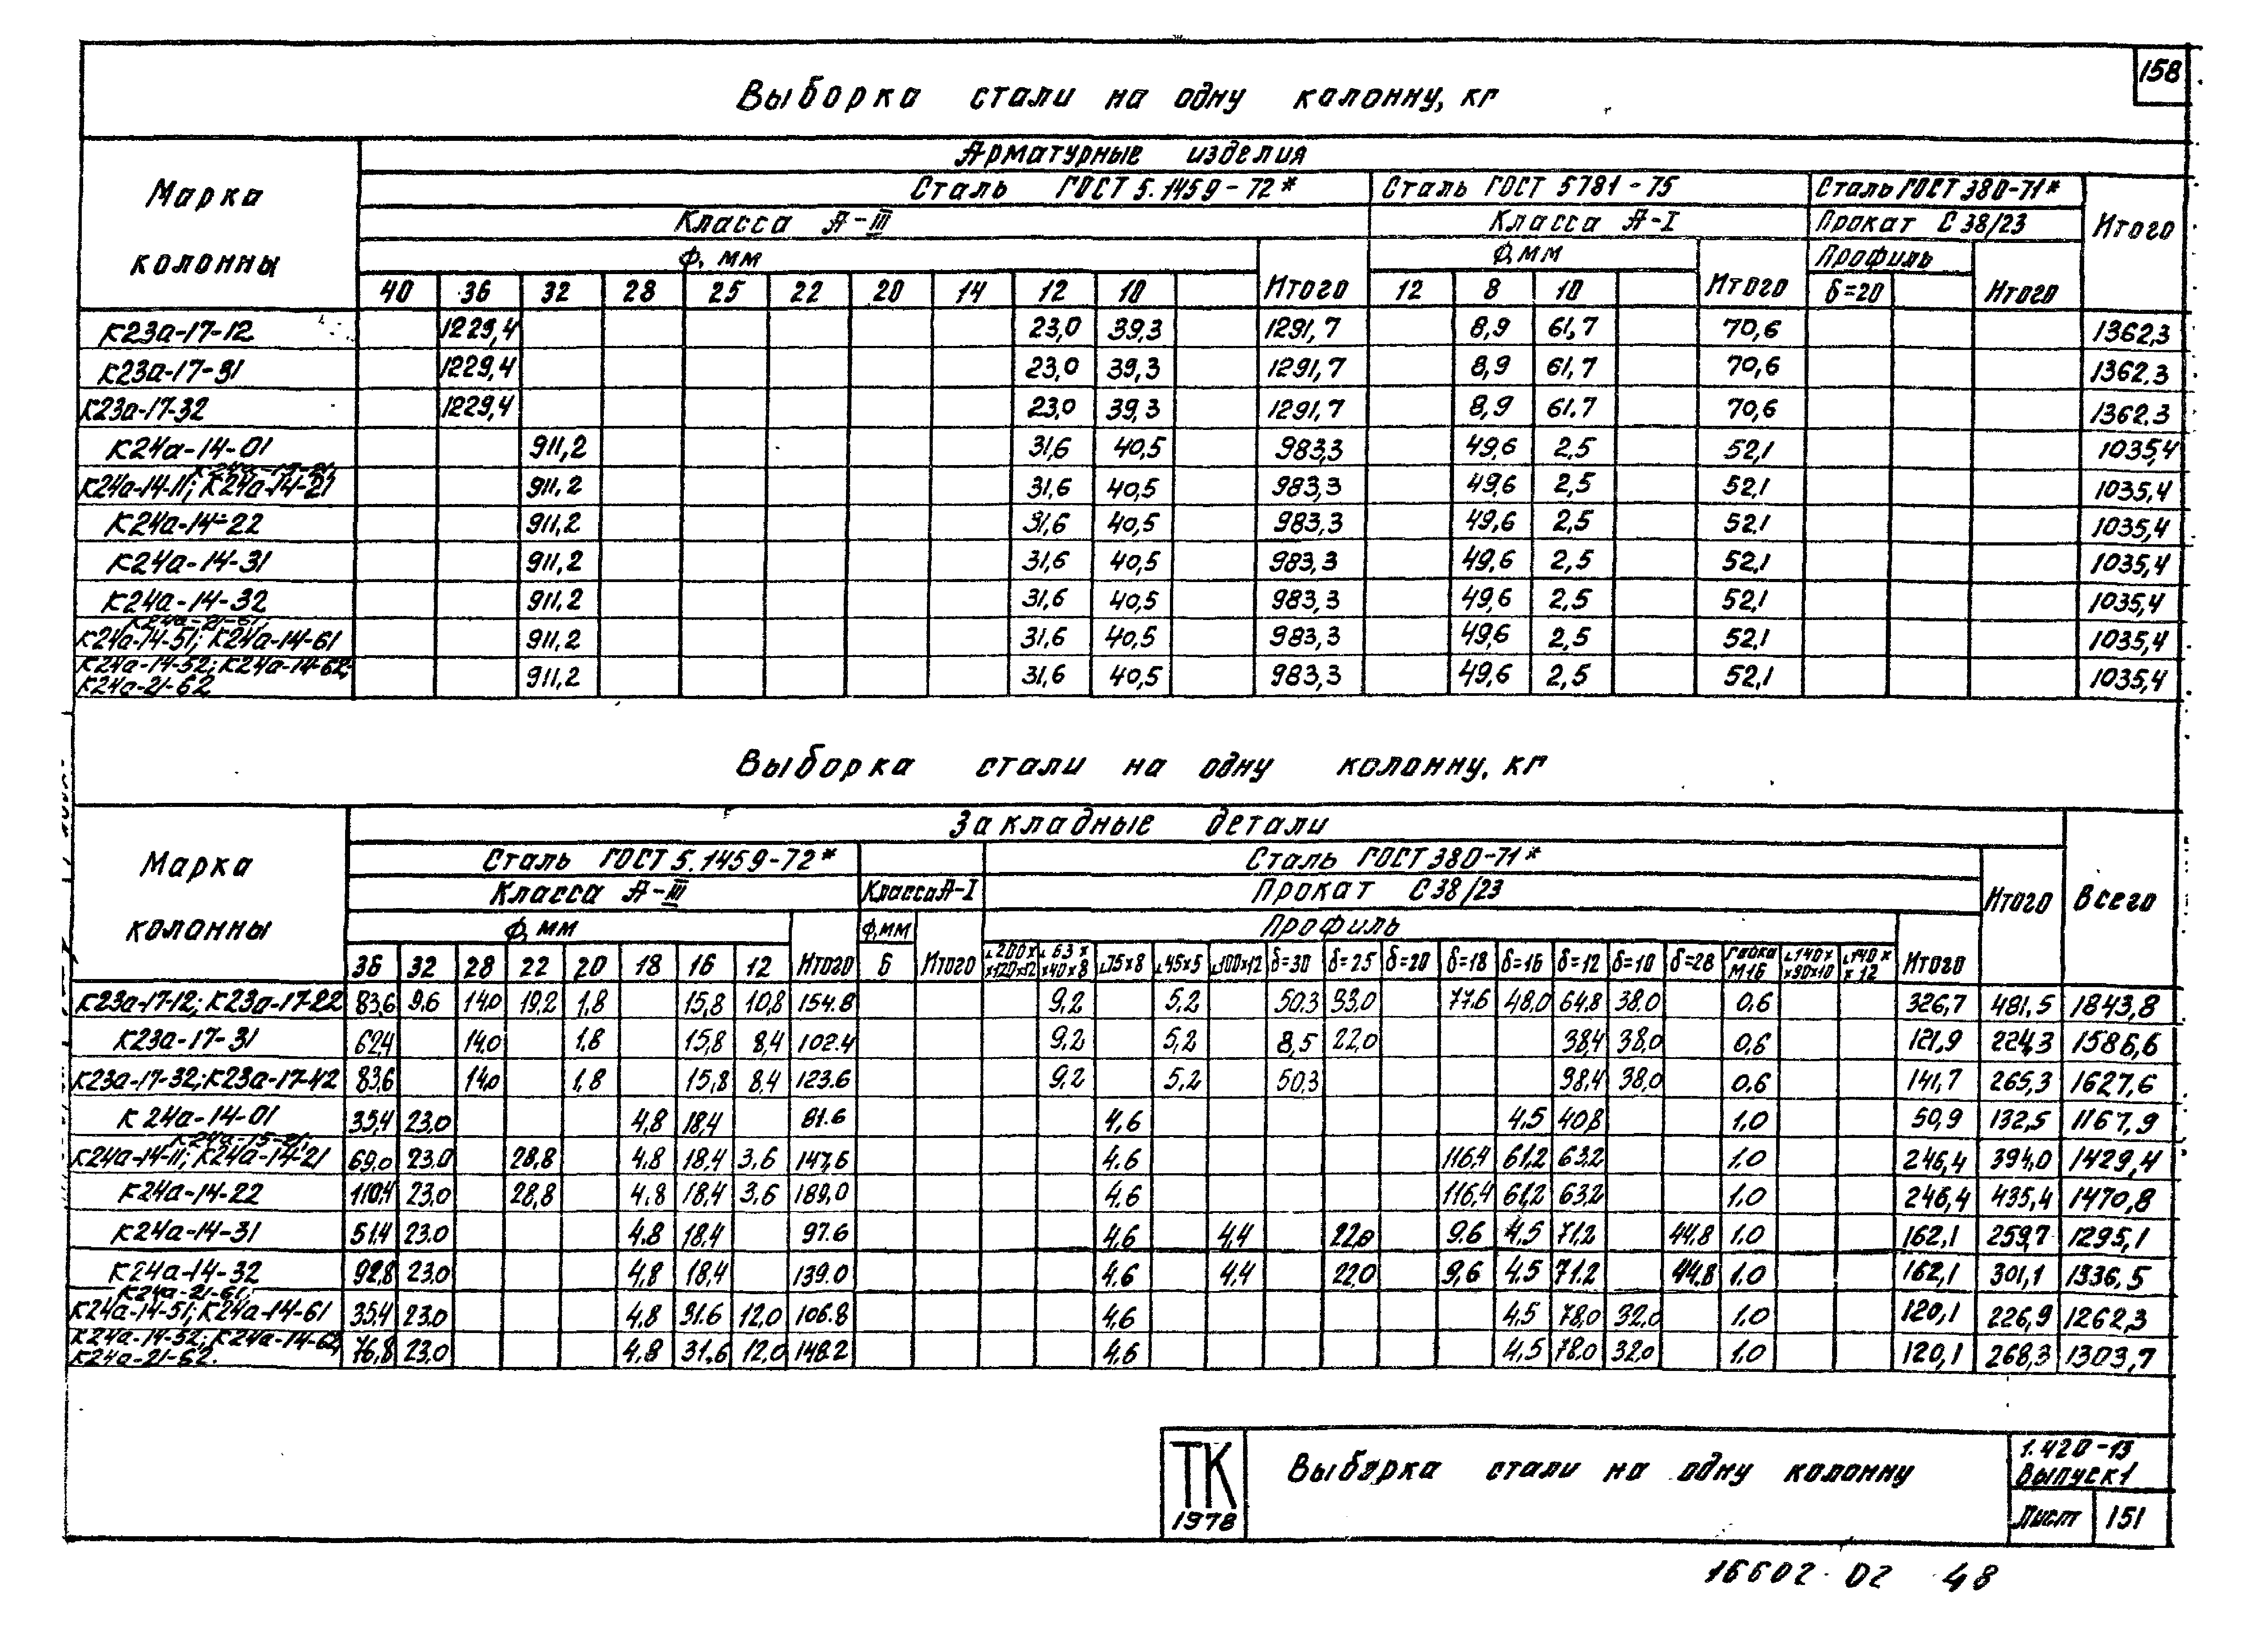 158
Выборка стали на одну колонну, кг
Марка колонны
Арматурные изделия
Сталь ГОСТ 5.1459-72* Сталь ГОСТ 5781-75 Сталь ГОСТ 380-71* Итого
Класса А-III Класса А-I Прокат С 38/23
Ф, мм Итого Ф,мм Итого Профиль Итого
40 36 32 28 25 22 20 14 12 10 12 8 10 δ=20
К23а-17-12 1229,4 23,0 39,3 1291,7 8,9 61,7 70,6 1362,3
К23а-17-31 1229,4 23,0 39,3 1291,7 8,9 61,7 70,6 1362,3
К23а-17-32 1229,4 23,0 39,3 1291,7 8,9 61.7 70,6 1362.3
К24а-14-01 911,2 31,6 40,5 983,3 49,6 2,5 52,1 1035,4
К24а-15-21;
К24а-14-11; К24а-14-21 911,2 31,6 40,5 983,3 49,6 2,5 52,1 1035,4
К24а-14-22 911,2 31,6 40,5 983,3 49,6 2,5 52,1 1035,4
К24а-14-31 911,2 31,6 40,5 983,3 49,6 2,5 52,1 1035,4
К24а-14-32 911,2 31,6 40,5 983,3 49,6 2,5 52,1 1035,4
К24а-21-61;
К24а-14-51; К24а-14-61 911,2 31,6 40,5 983,3 49,6 2,5 52,1 1035,4
К24а-14-52; К24а-14-62;
К24а-21-62 911,2 31,6 40,5 983,3 49,6 2,5 52,1 1035,4
Выборка стали на одну колонну, кг
Марка колонны
Закладные детали Всего
Сталь ГОСТ 5.1459-72* Сталь ГОСТ 380-71* Итого
Класса А-III Класса А-I Прокат С 38/23
Ф, мм Итого Ф,мм Итого Профиль Итого
36 32 28 22 20 18 16 12 Итого 6 Итого ∟200х х120х12 ∟63х х40х8 ∟75х8 ∟45х5 ∟100х12 δ=30 δ=25 δ=20 δ=18 δ=16 δ=12 δ=10 δ=28 Гайка М16 ∟140х х90х10 ∟140х х12 Итого
К23а-17-12; К23а-17-22 83,6 9,6 14,0 19,2 1,8 15,8 10,8 154.8 9,2 5,2 50,3 33,0 77,6 48,0 64,8 38,0 0,6 326,7 481,5 1843,8
К23а-17-31 62,4 14,0 1,8 15,8 8,4 102.4 9,2 5,2 8,5 22,0 38,4 38,0 0,6 121,9 224,3 1586,6
К23а-17-32; К23а-17-42 83,6 14,0 1,8 15,8 8,4 123.6 9,2 5,2 50,3 38,4 38,0 0,6 141,7 265,3 1627,6
К24а-14-01 35,4 23,0 4,8 18,4 81.6 4,6 4,5 40,8 1,0 50,9 132,5 1167,9
К24а-15-21;
К24а-14-11; К24а-14-21 69,0 23,0 28,8 4,8 18,4 3,6 147,6 4,6 116,4 61,2 63,2 1,0 246,4 394,0 1429,4
К24а-14-22 110,4 23,0 28,8 4,8 18,4 3,6 189,0 4,6 116,4 61,2 63,2 1,0 246,4 435,4 1470,8
К24а-14-31 51,4 23,0 4,8 18,4 97.6 4,6 4,4 22,0 9,6 4,5 71,2 44,8 1,0 162,1 259,7 1295,1
К24а-14-32 92,8 23,0 4,8 18,4 139.0 4,6 4,4 22,0 9,6 4,5 71,2 44,8 1,0 162,1 301,1 1336,5
К24а-21-61;
К24а-14-51; К24а-14-61 35,4 23,0 4,8 31.6 12,0 106.8 4,6 4,5 78,0 32,0 1,0 120,1 226,9 1262,3
К24а-14-52; К24а-14-62;
К24а-21-62. 76,8 23,0 4,8 31,6 12,0 148.2 4,6 4,5 78,0 32,0 1,0 120,1 268,3 1303,7
ТК
1978
Выборка стали на одну колонну
1.420-13
Выпуск 1
Лист 151
16602-02 48